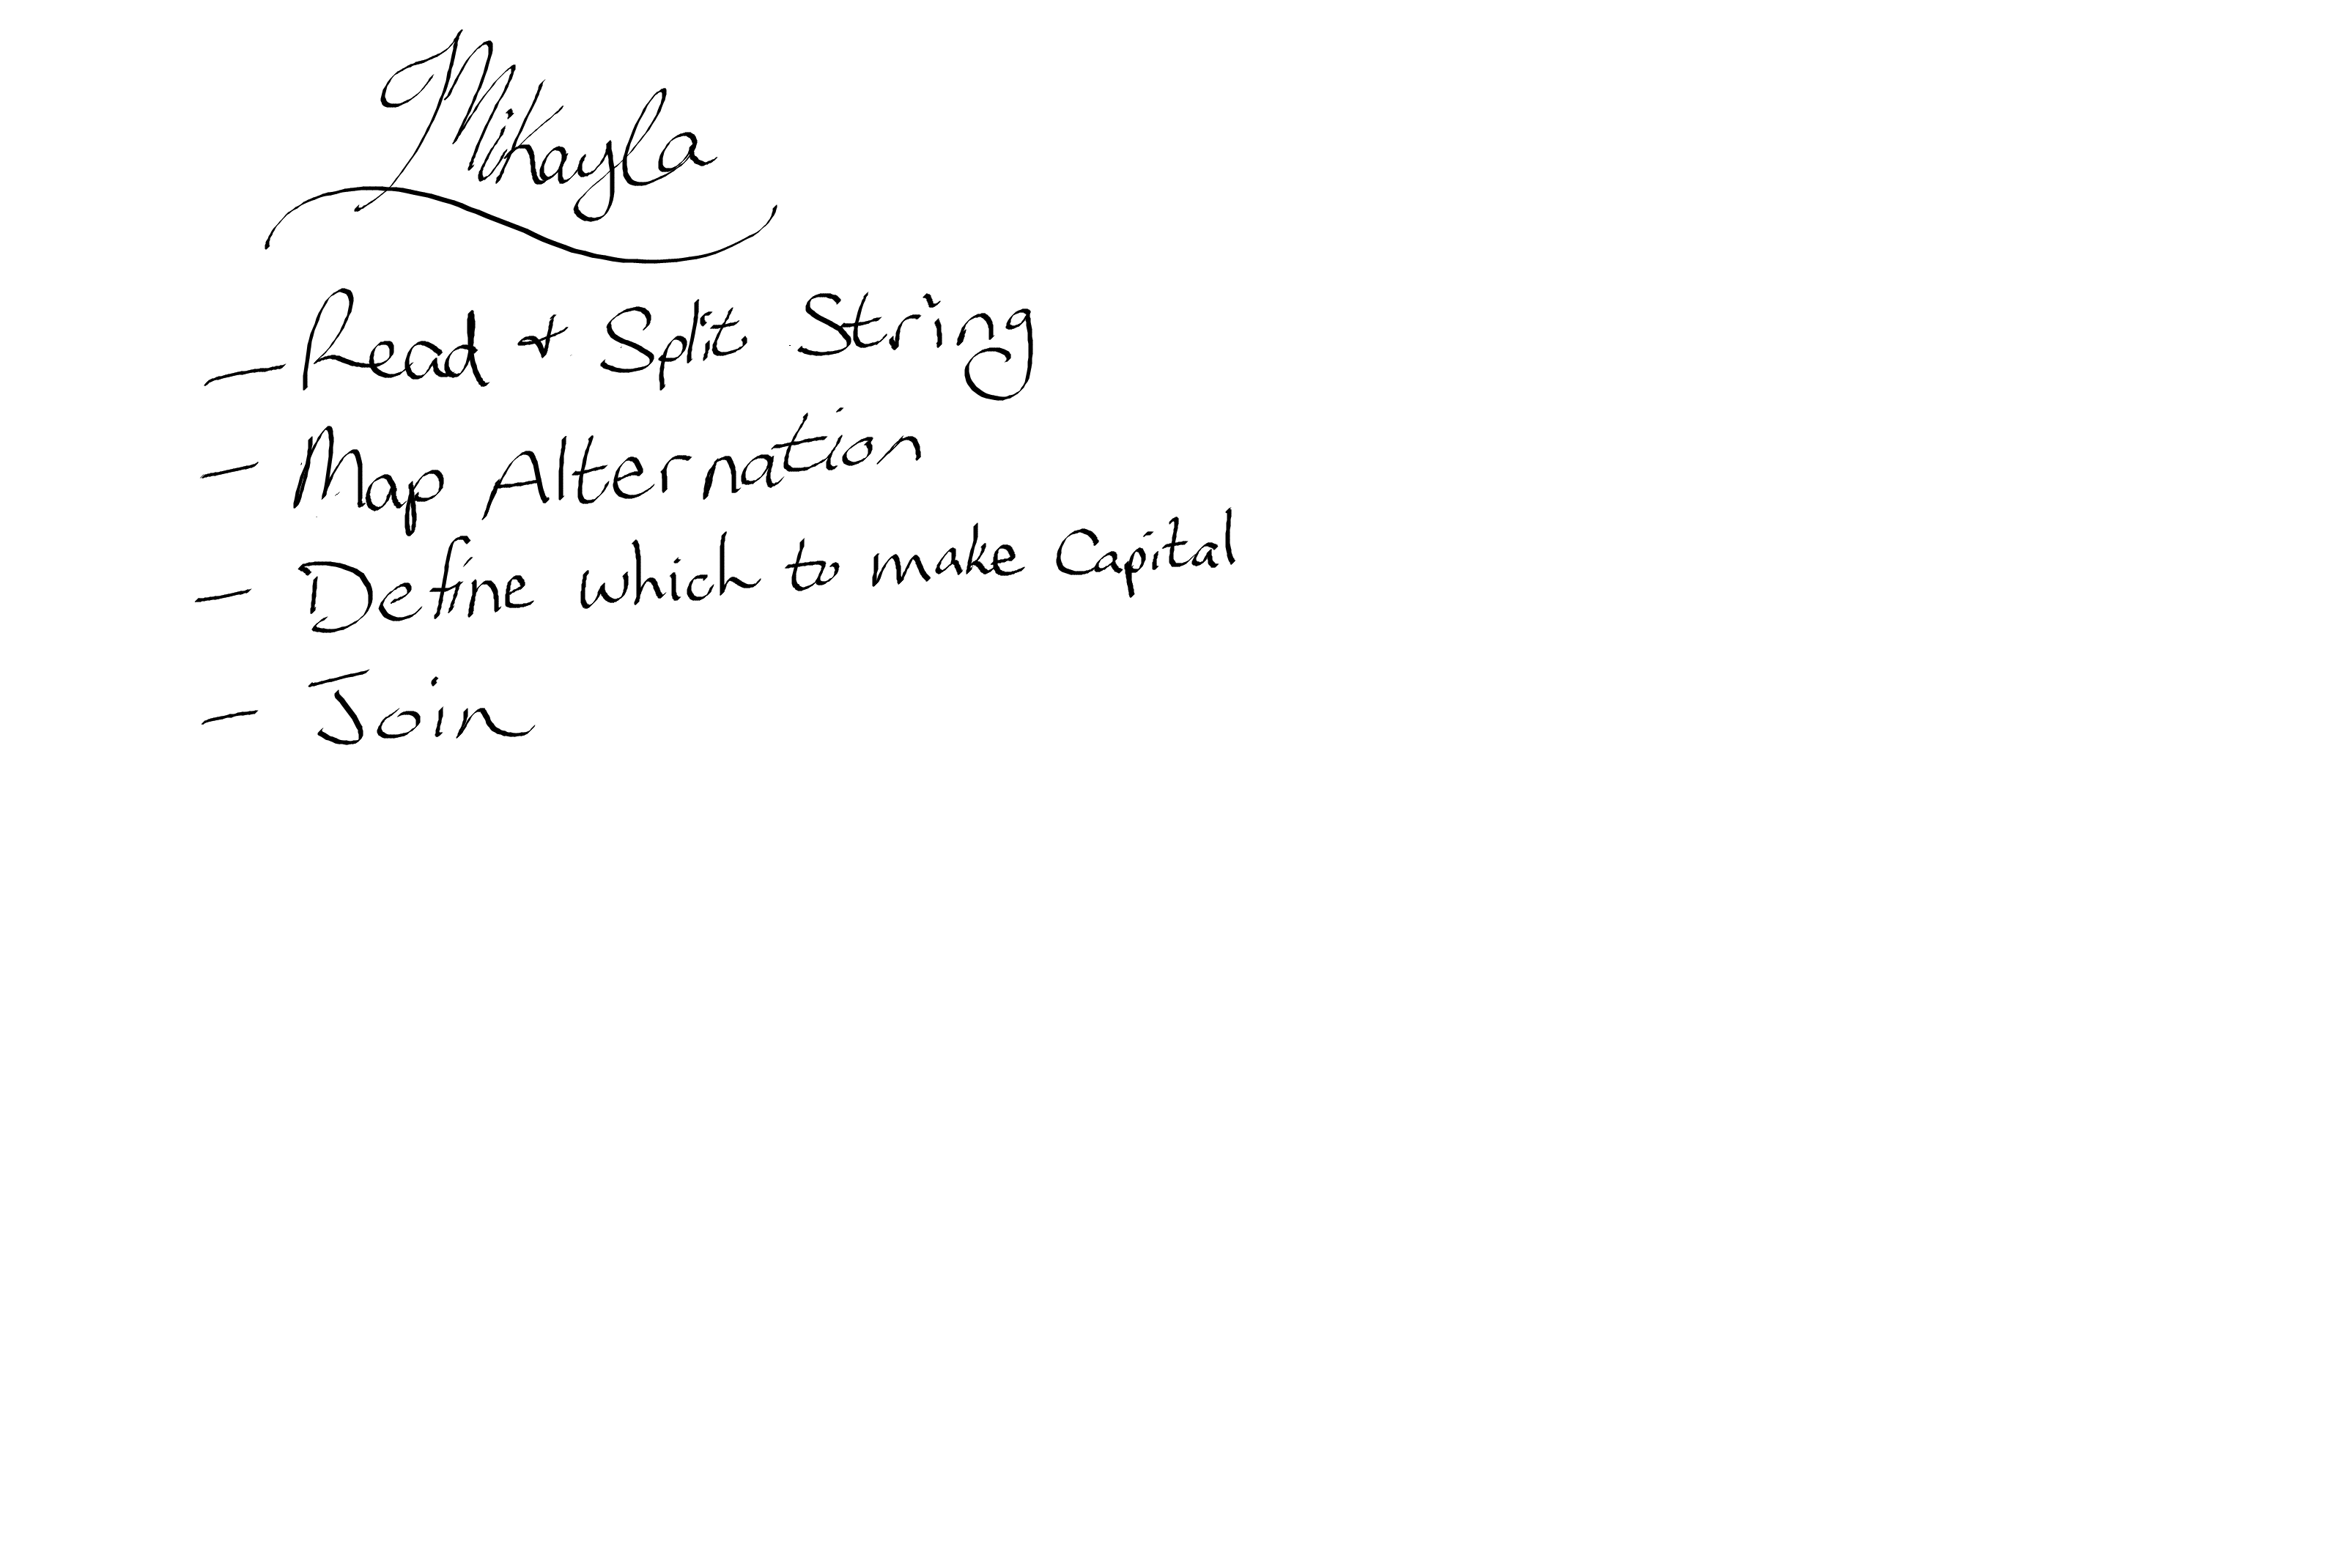 Mikayla
- Read + Split String
- Map Alternation
- Define which to make Capital
- Join